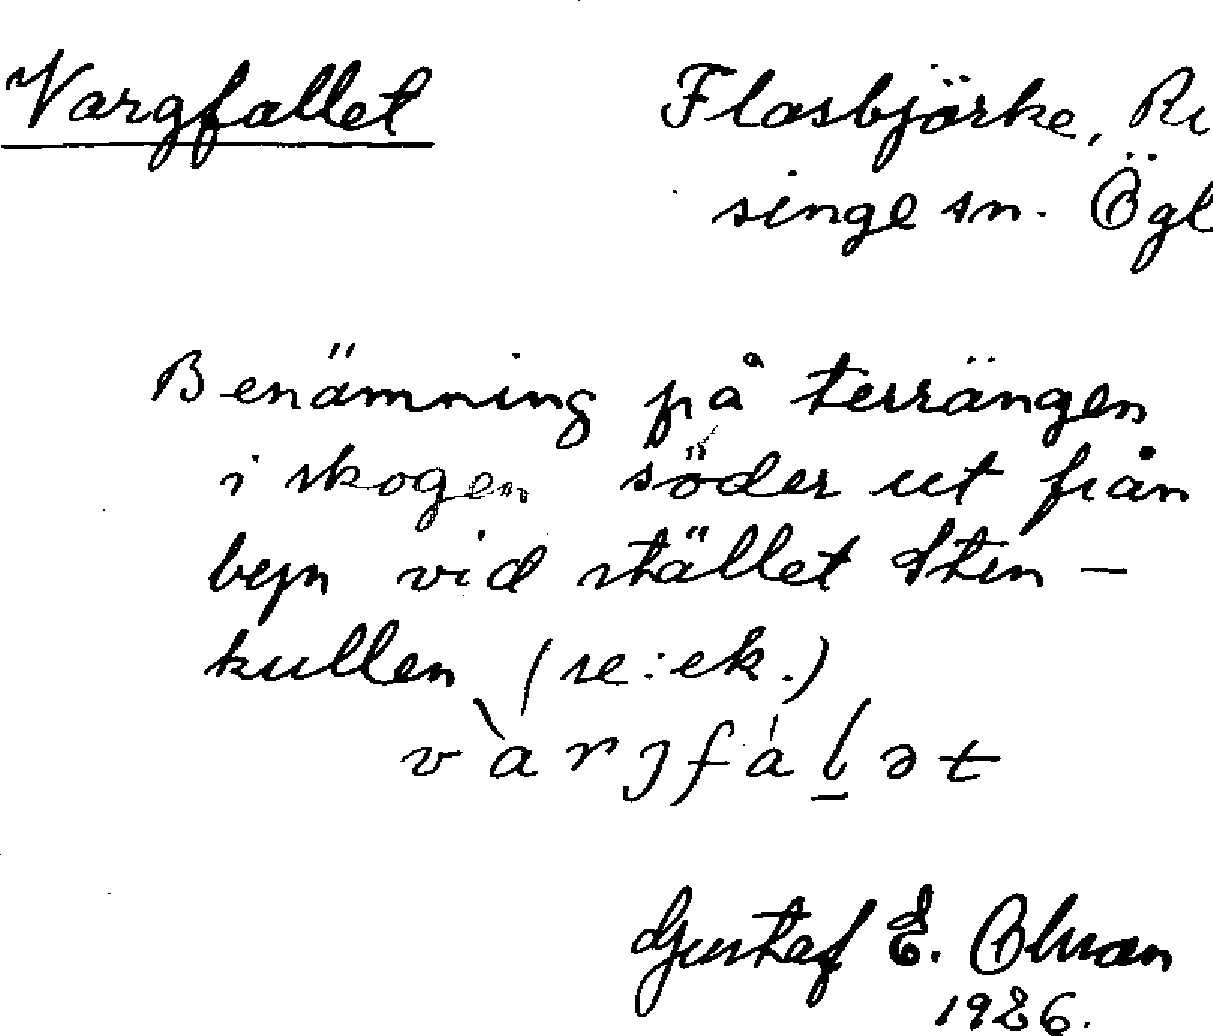 Vargfallet
Flasbjörke, Ri
singe sn. Ögl
Benämning på terrängen
i skogen söder ut från
byn vid stället Sten-
kullen (se: ek.)
Gustaf E.
1926.